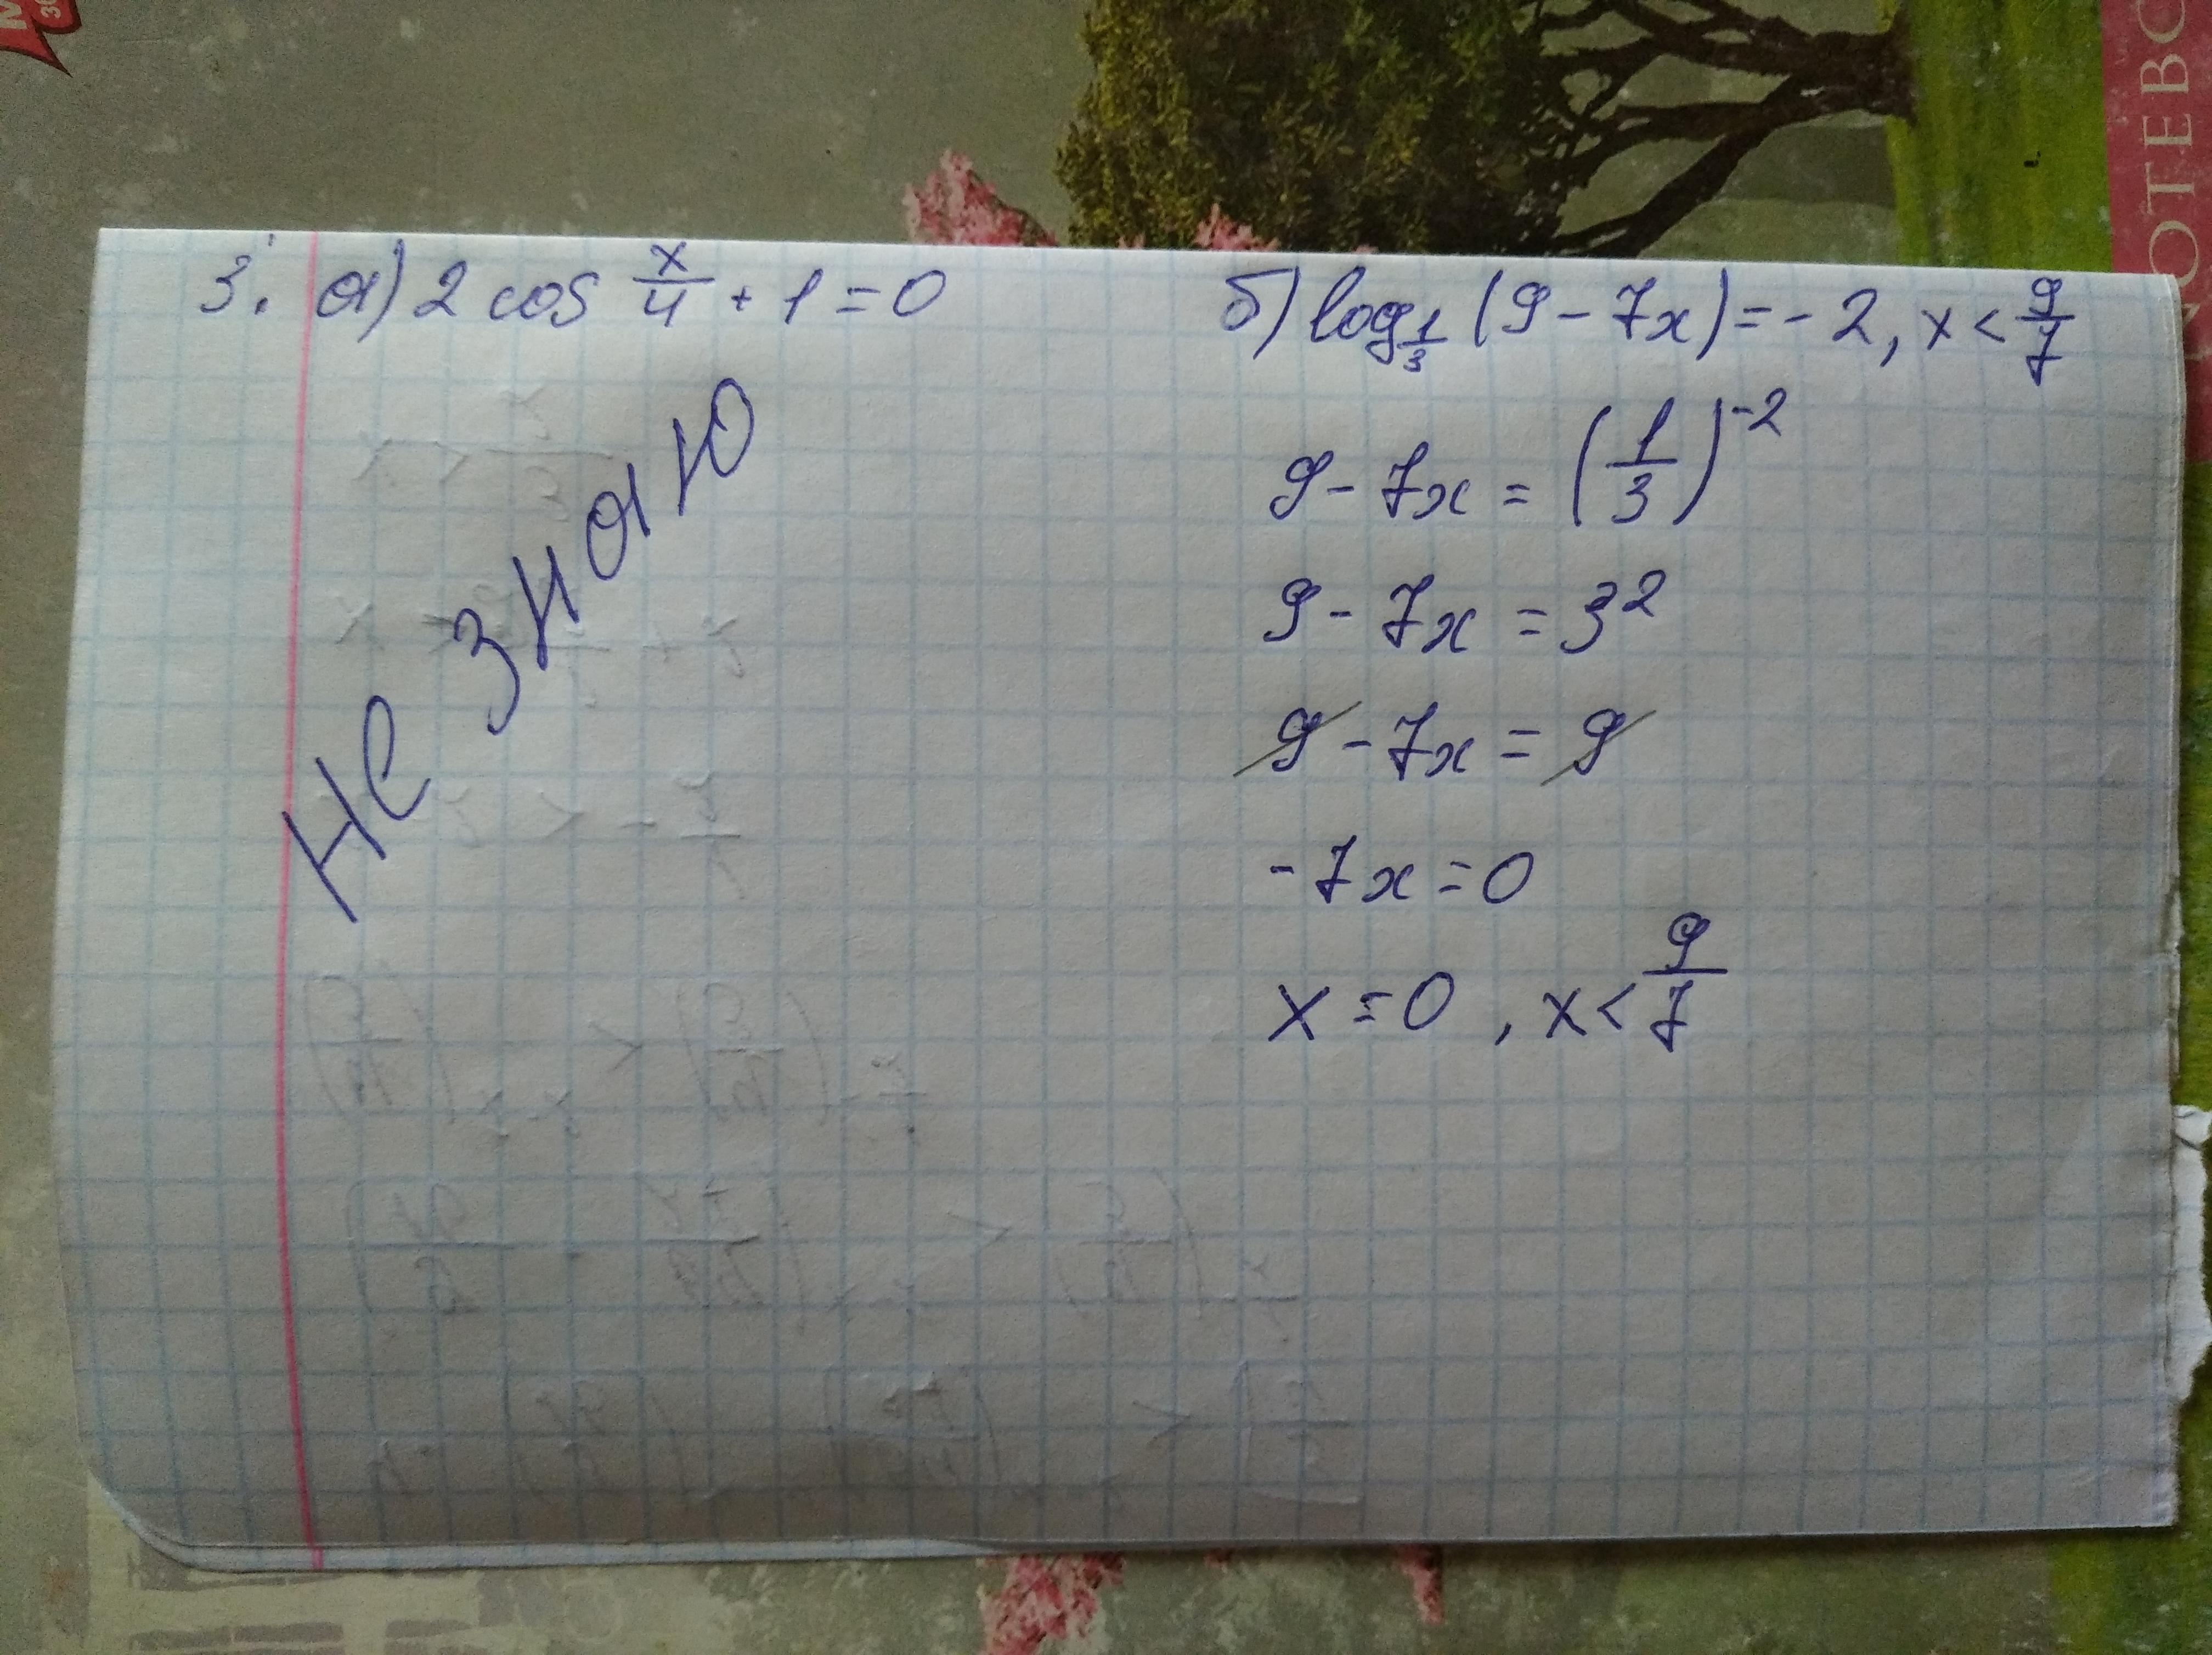 3. а) 2 cos x/4 + 1 = 0
Не знаю
б) log_{1/3} (9 - 7x) = -2, x < 9/7
9 - 7x = (1/3)^{-2}
9 - 7x = 3^2
9 - 7x = 9
-7x = 0
x = 0, x < 9/7